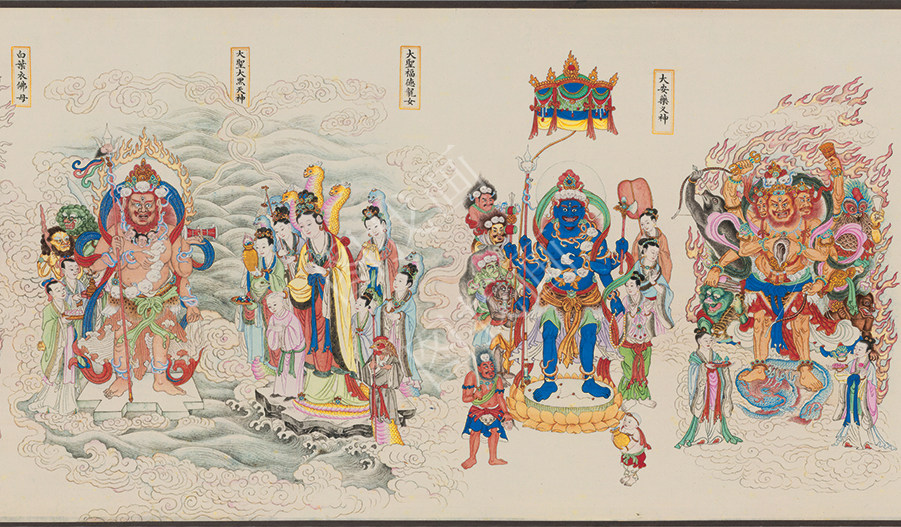 大安藥叉神
大聖福德龍女
大聖大黑天神
白葉衣佛母